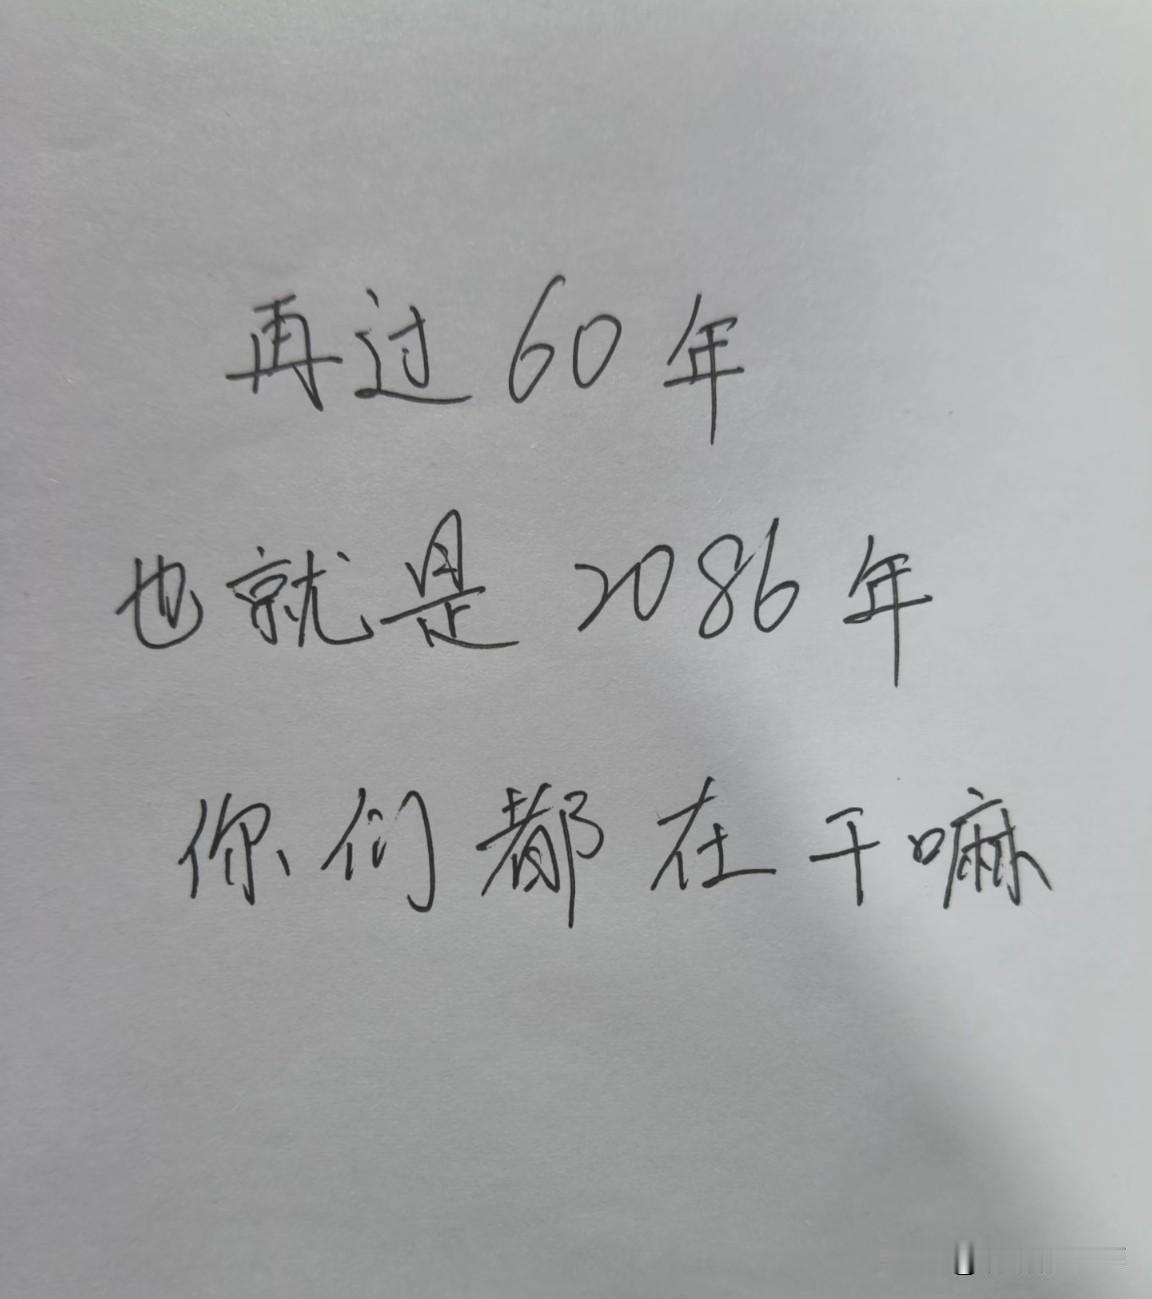 再过60年
也就是2086年
你们都在干嘛